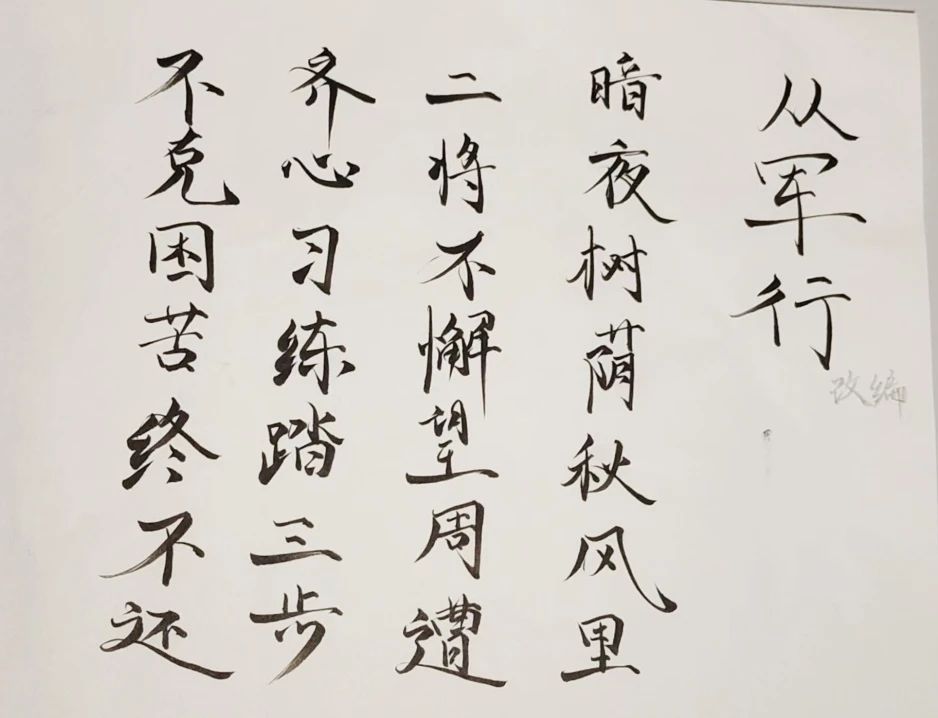 从军行
改编
暗夜树荫秋风里
二将不懈望周遭
齐心习练踏三步
不克困苦终不还